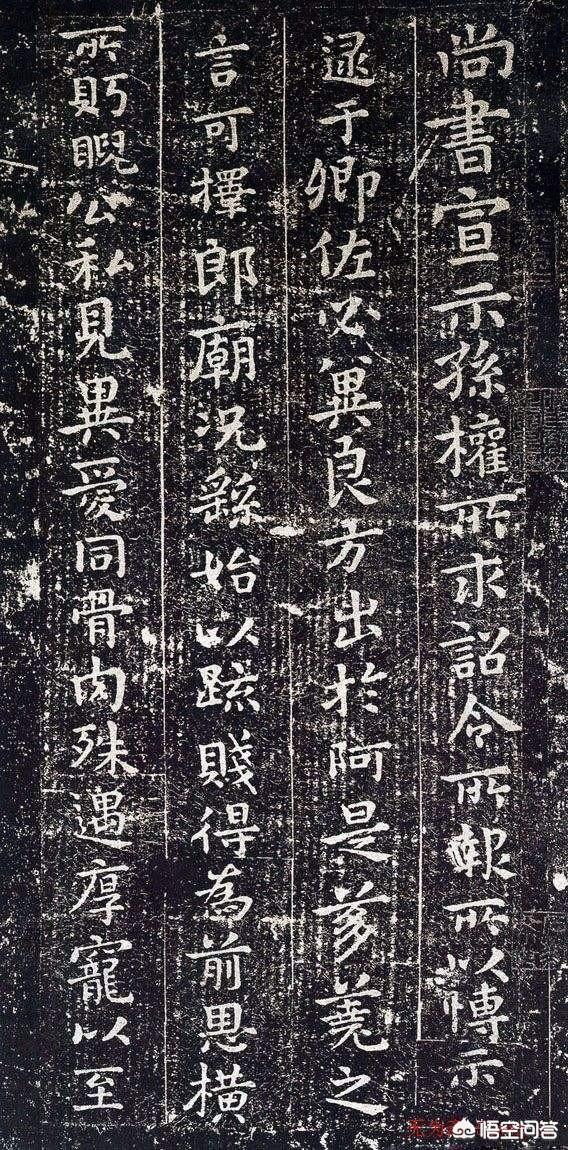 尚書宣示孫權所求詔令所報所以愽示
逮于卿佐必冀良方出於阿是芻蕘之
言可擇郎廟況繇始以踈賤得為前恩橫
所眄睨公私見異愛同骨肉殊遇厚寵以至
悟空问答